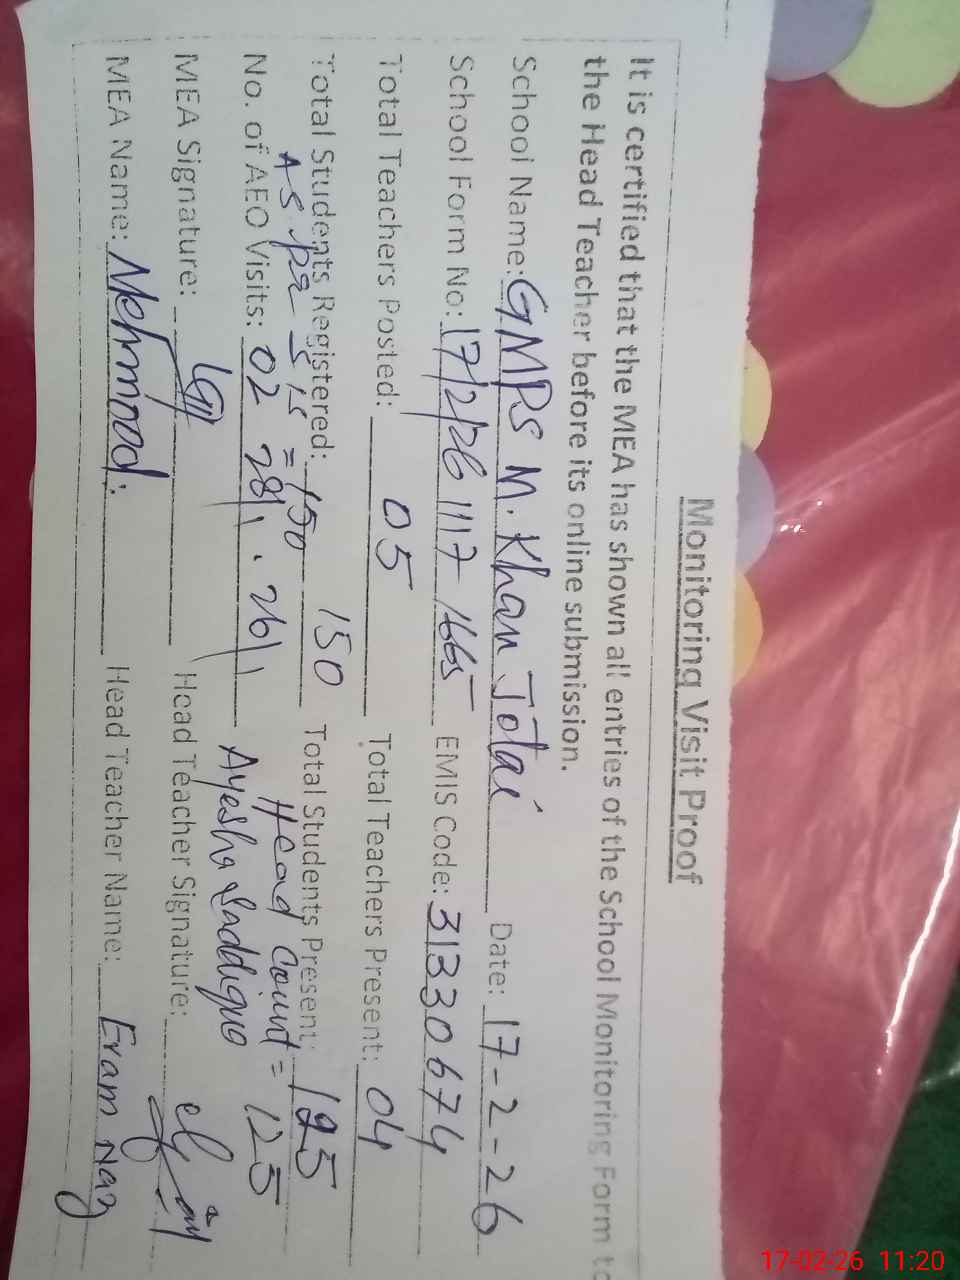 Monitoring Visit Proof
It is certified that the MEA has shown all entries of the School Monitoring Form to
the Head Teacher before its online submission.
School Name: GMPS M. Khan Jotai Date: 17-2-26
School Form No: 17/2/26 1117 1665 EMIS Code: 31330674
Total Teachers Posted: 05 Total Teachers Present: 04
Total Students Registered: 150 Total Students Present: 125
As per SIS = 150 Head Count = 125
No. of AEO Visits: 02 28/1.26 Ayesha Saddique
MEA Signature: Head Teacher Signature:
MEA Name: Mehmood. Head Teacher Name: Eram Naz
17-02-26 11:20